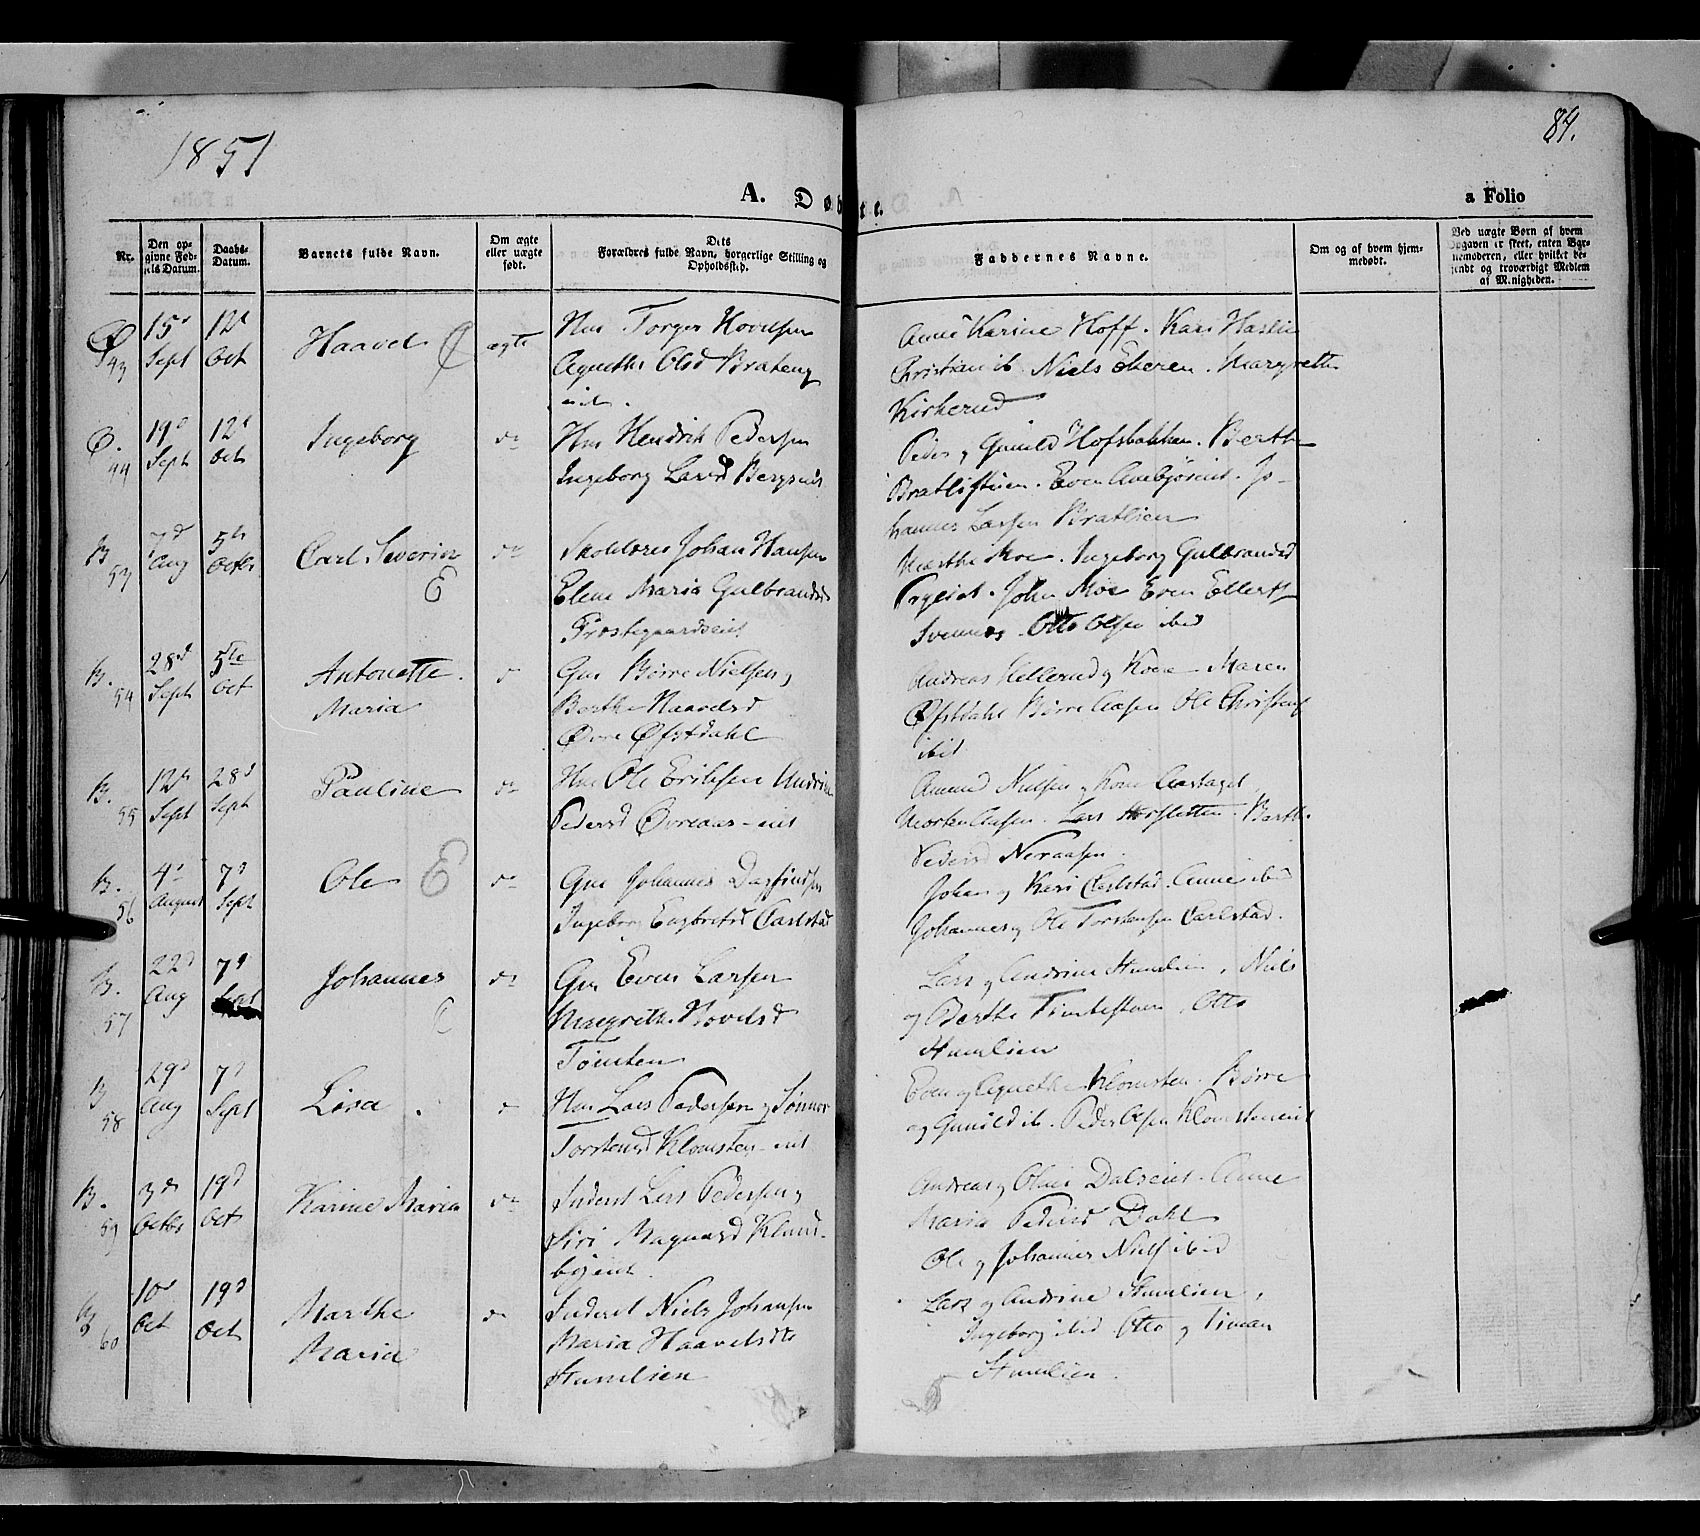 1851
84.
A. Døbte.
a Folio
Nr.
Den opgivne Fødsels Datum.
Daabs-Datum.
Barnets fulde Navn.
Om ægte eller uægte født.
Dets Forældres fulde Navn, borgerlige Stilling og Opholdssted.
Faddernes Navne.
Om og af hvem hjemmedøbt.
Ved uægte Børn af hvem Opgaven er skeet, enten Barnemoderen, eller hvilket bekjendt og troværdigt Medlem af Menigheden.
Ø 43
15d Sept
12d Oct
Haavel
ægte
Hus. Torger Hovelsen
Agnethe Olsd Brateng
eiet.
Anne Karine Hoff. Kari Haslie
Christian ib. Niels Ekeren. Margrethe
Kirkerud
Ø. 44
19d Sept
12d Oct
Ingeborg
do
Hus Hendrik Pedersen
Ingeborg Larsd Bergseiet
Peder og Gunild Hofsbakken. Berthe
Bratlistuen. Even. Jo-
hannes Larsen Bratlien
B 53
7d Aug
5te Octbr
Carl Severin
do
Skolelærer Johan Hansen
Elene Maria Gulbrandsd
Præstegaardseiet
Marthe Moe. Ingeborg Gulbrandsd
John Moe Even Ellerts
Svennes. Otto Olsen ibid
B. 54
28d Sept
5te Oct
Antonette
Maria
do
Gm Børre Nielsen og
Berthe Haavelsd
Øvre Øfstdahl
Andreas Hellerud og Kone Maren
Øfstdahl Børre Aasen Ole Christens
ibid
B. 55
12te Sept
28d Sept
Pauline
do
Hus Ole Eriksen Andrine
Pedersd Øvreaas-eiet
Amund Nielsen og Kone
Morten Aasen. Lars. Berthe
Pedersd Neraasen.
B. 56
4d August
7d Sept
Ole
do
Gm Johannes Dagfindsen
Ingeborg Engbretsd Carlstad
Johan og Kari Carlstad. Anne ibid
Johannes og Ole Torstensen Carlstad.
B. 57
22d Aug
7d Sept
Johannes
do
Gm Even Larsen
Margrethe Hovelsd
Tomten
Lars og Andrine Humlien, Niels
og Berthe. Otto
Humlien
B 58
29d Aug
7d Sept
Lisa
do
Hus Lars Pedersen og Sønnøv
Torstensd Klomsten-eiet
Even og Agnethe Klomsten. Børre
og Gunild ib. Peder Olsen Klomsteneiet
B. 59
3die Octbr
19d Oct
Karine Maria
do
Inderst Lars Pedersen og
Siri Magnusd Klund-
byeiet.
Andreas og Olia Dalseiet. Anne
Maria Pedersd Dahl
Ole og Johannes Niels ibid
B 60
10d Oct
19d Oct
Marthe
Maria
do
Inderst Niels Johansen
Maria Haavelsdtr
Humlien
Lars og Andrine Humlien,
Ingeborg ibid Otto og Timan
Humlien.